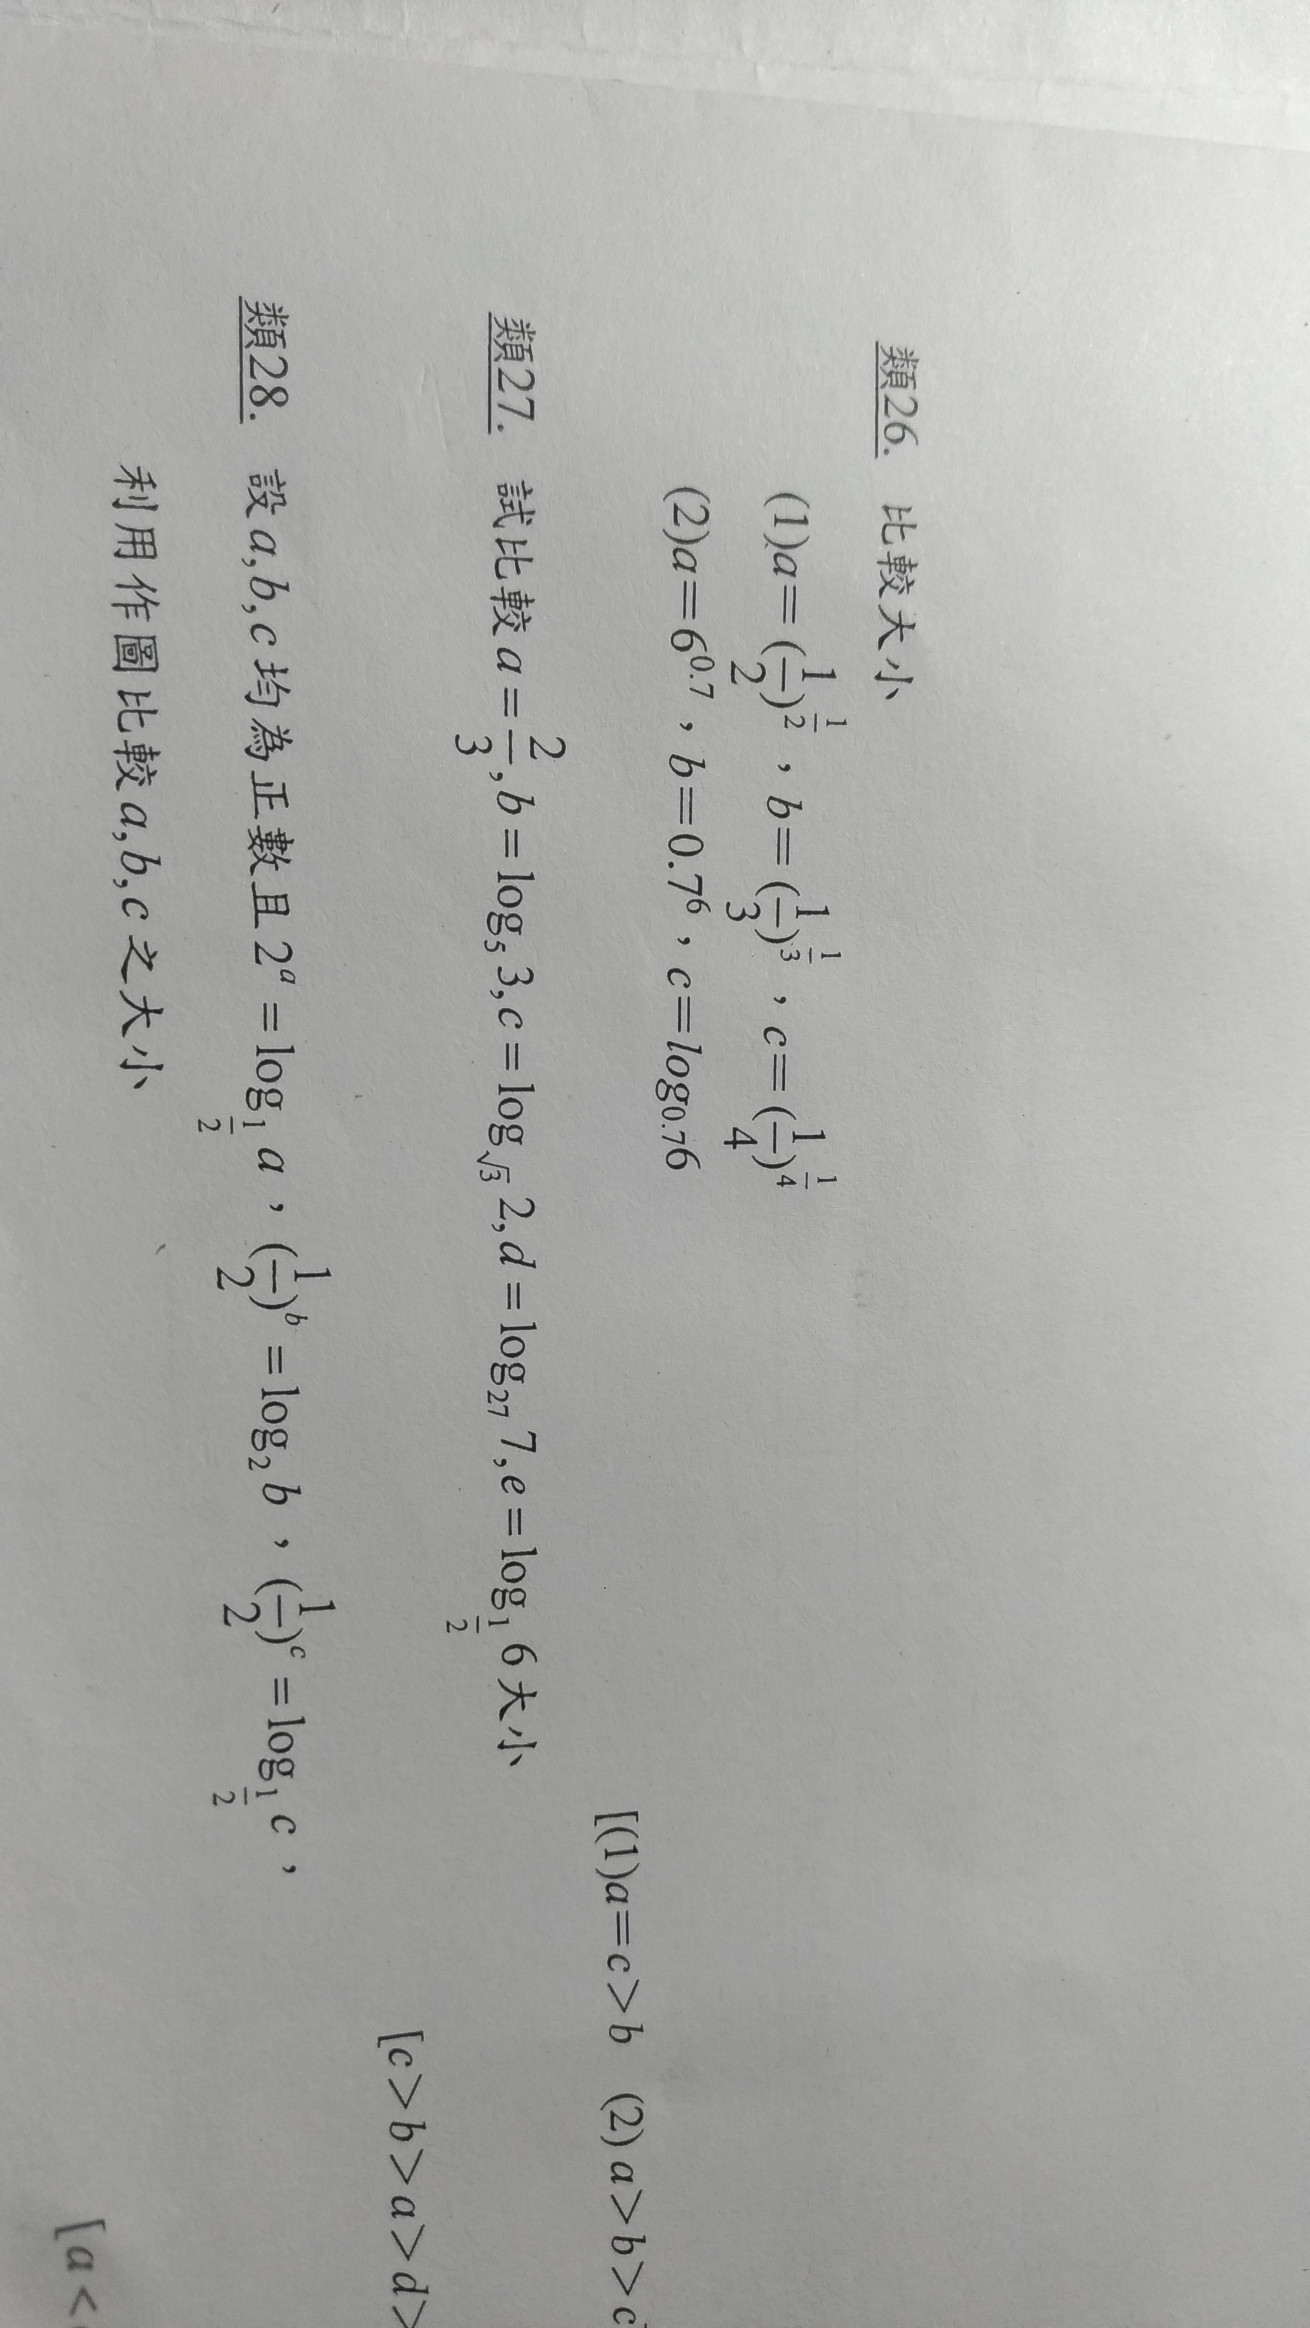 類26. 比較大小
(1)a=(1/2)^(1/2),b=(1/3)^(1/3),c=(1/4)^(1/4)
(2)a=6^0.7,b=0.7^6,c=log_0.7 6
[(1)a=c>b (2)a>b>c
類27. 試比較a=2/3,b=log_5 3,c=log_√3 2,d=log_27 7,e=log_(1/2) 6大小
[c>b>a>d>
類28. 設a,b,c均為正數且2^a=log_(1/2) a,(1/2)^b=log_2 b,(1/2)^c=log_(1/2) c,
利用作圖比較a,b,c之大小
[a<